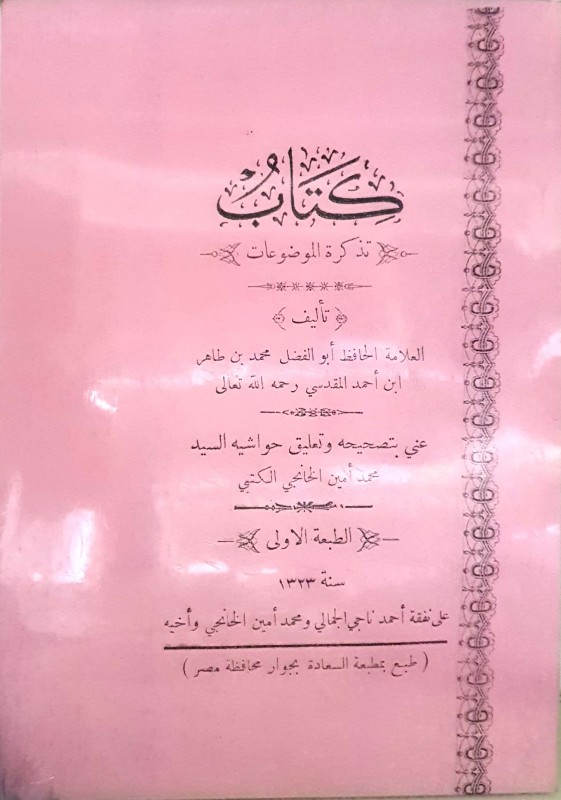 كتابُ
تذكرة الموضوعات
تأليف
العلامة الحافظ أبو الفضل محمد بن طاهر
ابن أحمد المقدسي رحمه الله تعالى
عني بتصحيحه وتعليق حواشيه السيد
محمد أمين الخانجي الكتبي
الطبعة الاولى
سنة ١٣٢٣
على نفقة أحمد ناجي الجمالي ومحمد أمين الخانجي وأخيه
( طبع بمطبعة السعادة بجوار محافظة مصر )